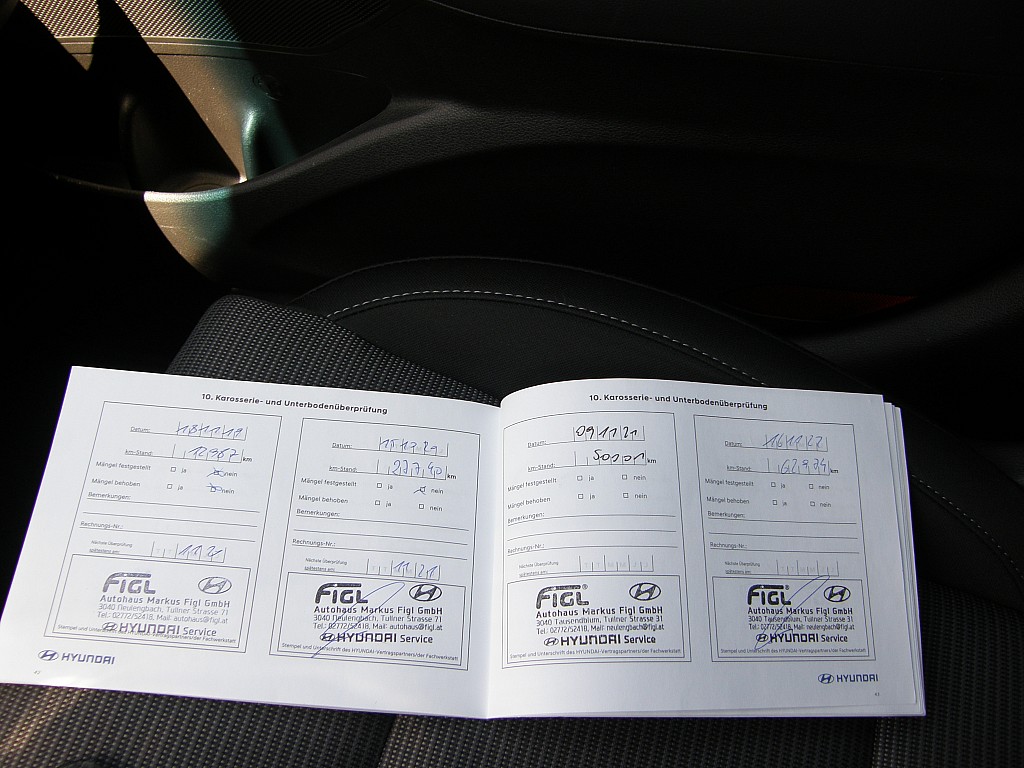 10. Karosserie- und Unterbodenüberprüfung
Datum: 18 11 19
km-Stand: 12.967 km
Mängel festgestellt ja nein
Mängel behoben ja nein
Bemerkungen:
Rechnungs-Nr.:
Nächste Überprüfung
spätestens am:
FIGL
Autohaus Markus Figl GmbH
3040 Neulengbach, Tullner Strasse 71
Tel.: 02772/52418, Mail: autohaus@figl.at
HYUNDAI Service
Stempel und Unterschrift des HYUNDAI-Vertragspartners/der Fachwerkstatt
HYUNDAI
Datum:
km-Stand: km
Mängel festgestellt ja nein
Mängel behoben ja nein
Bemerkungen:
Rechnungs-Nr.:
Nächste Überprüfung
spätestens am: 11 21
FIGL
Autohaus Markus Figl GmbH
3040 Neulengbach, Tullner Strasse 71
Tel.: 02772/52418, Mail: autohaus@figl.at
HYUNDAI Service
Stempel und Unterschrift des HYUNDAI-Vertragspartners/der Fachwerkstatt
10. Karosserie- und Unterbodenüberprüfung
Datum: 09 11 21
km-Stand: km
Mängel festgestellt ja nein
Mängel behoben ja nein
Bemerkungen:
Rechnungs-Nr.:
Nächste Überprüfung
spätestens am:
FIGL
Autohaus Markus Figl GmbH
3040 Tausendblum, Tullner Strasse 31
Tel.: 02772/52418, Mail: neulengbach@figl.at
HYUNDAI Service
Stempel und Unterschrift des HYUNDAI-Vertragspartners/der Fachwerkstatt
Datum: 16 11 22
km-Stand: 62.974 km
Mängel festgestellt ja nein
Mängel behoben ja nein
Bemerkungen:
Rechnungs-Nr.:
Nächste Überprüfung
spätestens am:
FIGL
Autohaus Markus Figl GmbH
3040 Tausendblum, Tullner Strasse 31
Tel.: 02772/52418, Mail: neulengbach@figl.at
HYUNDAI Service
Stempel und Unterschrift des HYUNDAI-Vertragspartners/der Fachwerkstatt
HYUNDAI